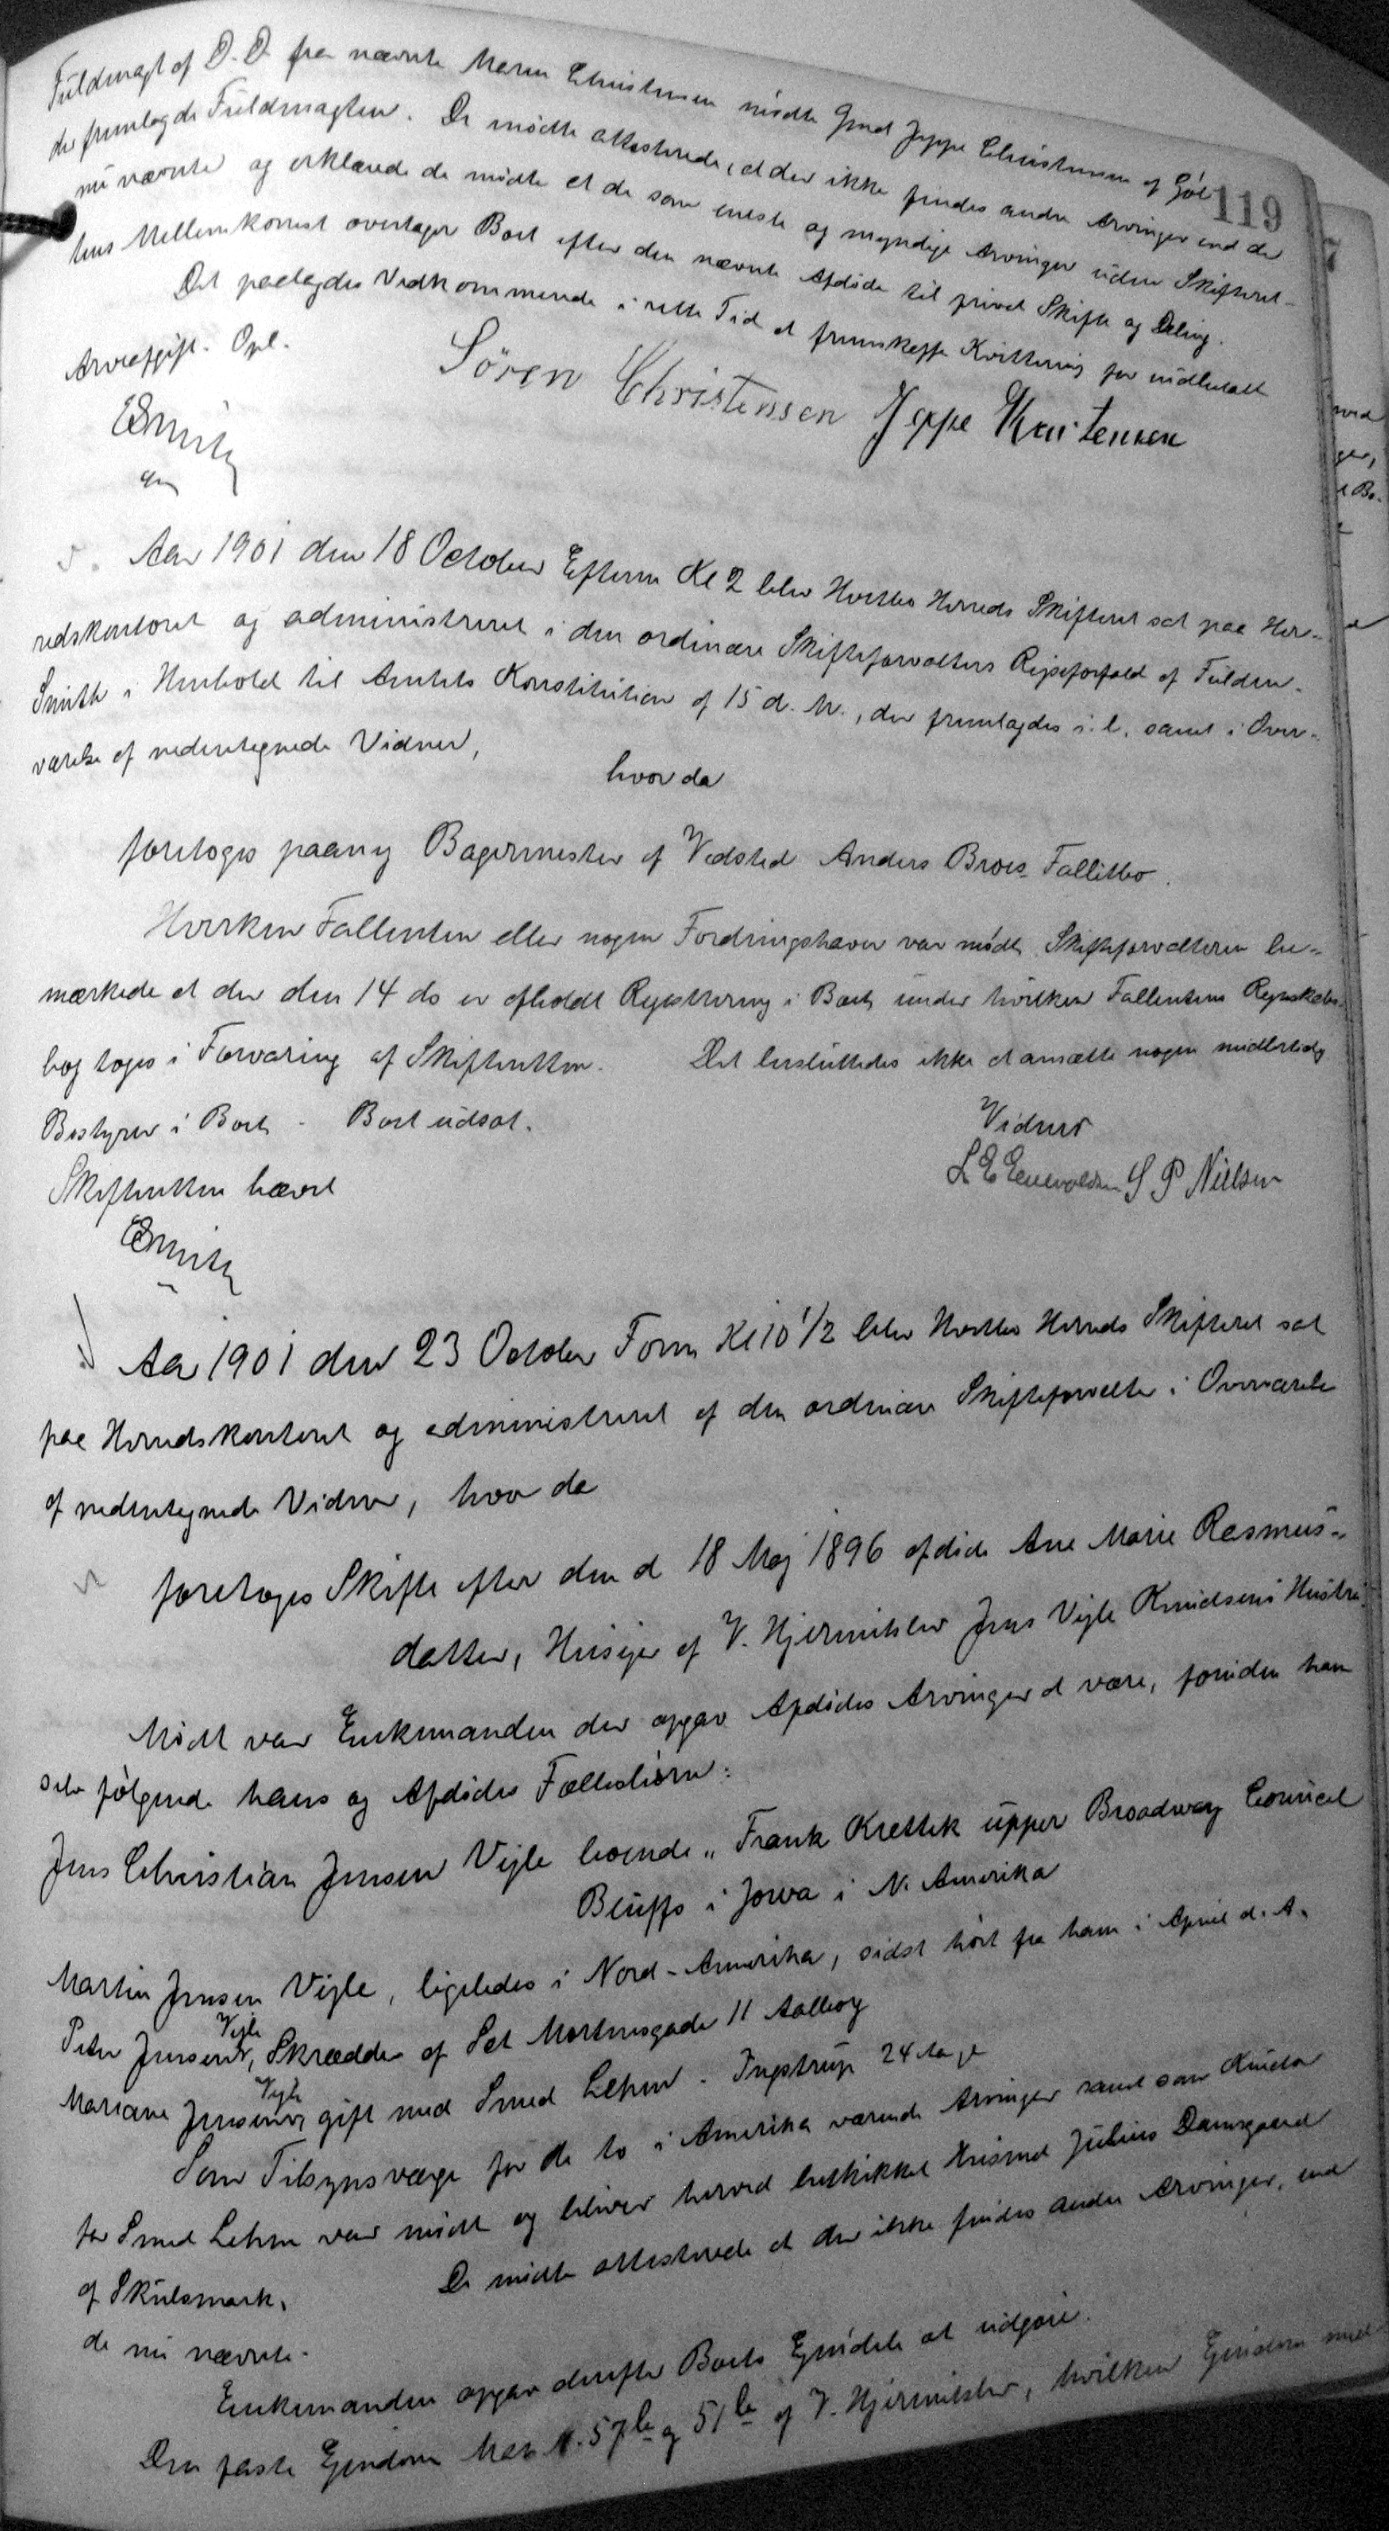 Fuldmagt af D. D. fra nævnte Maren Christensen mødte Gmd Jeppe Christensen af Gjøl
119
der fremlagde Fuldmagten. De mødte attesterede, at der ikke findes andre Arvinger end de
nu nævnte og erklærede de mødte at de som eneste og myndige Arvinger uden Skifteret-
tens Mellemkomst overtager Boet efter den nævnte Afdøde til privat Skifte og Deling.
Det paalagdes Vedkommende i rette Tid at fremskaffe Kvittering for indbetalt
Arveafgift. Opl.
Sören Christensen Jeppe Kristensen
Smith
Aar 1901 den 18 October Efterm Kl 2 blev Hvetbo Herreds Skifteret sat paa Her-
redskontoret og administreret i den ordinære Skifteforvalters Rejseforfald af Fuldm.
Smith i Henhold til Amtets Konstitution af 15 d. M., der fremlagdes i. l. samt i Over-
værelse af nedentegnede Vidner,
hvor da
foretoges paany Bagermester af Vedsted Anders Broes Fallitbo.
Hverken Fallenten eller nogen Fordringshaver var mødt. Skifteforvalteren be-
mærkede at der den 14 ds er afholdt Registrering i Boet, under hvilken Fallentens Regnskabs-
bog toges i Forvaring af Skifteretten. Det besluttedes ikke at ansætte nogen midlertidig
Bestyrer i Boet. Boet udsat.
Vidner
Skifteretten hævet
L E Enevoldsen S P Nielsen
Smith
Aar 1901 den 23 October Form Kl 10 1/2 blev Hvetbo Herreds Skifteret sat
paa Herredskontoret og administreret af den ordinære Skifteforvalter i Overværelse
af nedentegnede Vidner, hvor da
foretoges Skifte efter den d 18 Maj 1896 afdøde Ane Marie Rasmus-
datter, Husejer af V. Hjermitslev Jens Vejle Knudsens Hustru.
Mødt var Enkemanden der opgav Afdødes Arvinger at være, foruden ham
selv følgende hans og Afdødes Fællesbørn:
Jens Christian Jensen Vejle boende „ Frank Krettek upper Broadway Council
Bluffs i Jowa i N. Amerika
Martin Jensen Vejle, ligeledes i Nord-Amerika, sidst hørt fra ham i April d. A.
Peter Jensen Vejle, Skrædder af Sct Mortensgade 11 Aalborg
Mariane Jensen Vejle gift med Smed Lehm. Ingstrup 24 Aar
Som Tilsynsværge for de to i Amerika værende Arvinger samt som Kurator
for Smed Lehm var mødt og bliver herved beskikket Husmd Julius Damgaard
af Skulsmark. De mødte attesterede at der ikke findes andre Arvinger, end
de nu nævnte.
Enkemanden opgav derefter Boets Ejendele at udgøre.
Den faste Ejendom Matr N. 57b og 51b af V. Hjermitslev, hvilken Ejendom med